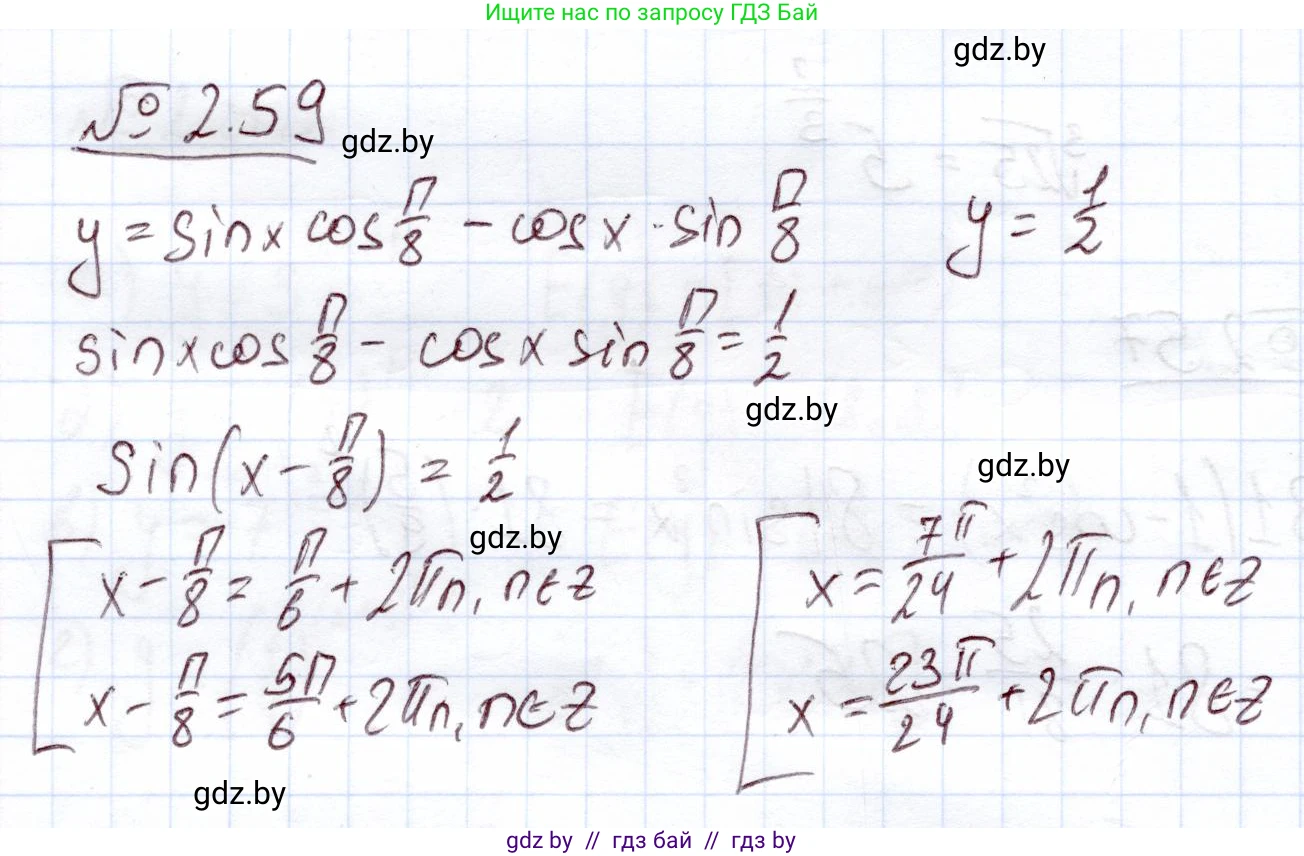 Ищите нас по запросу ГДЗ Бай
gdz.by
№ 2.59
gdz.by
y = sin x cos π/8 − cos x · sin π/8    y = 1/2
sin x cos π/8 − cos x sin π/8 = 1/2
gdz.by
sin(x − π/8) = 1/2
gdz.by
gdz.by
[ x − π/8 = π/6 + 2πn, n∈z
x − π/8 = 5π/6 + 2πn, n∈z
[ x = 7π/24 + 2πn, n∈z
x = 23π/24 + 2πn, n∈z
gdz.by
gdz by // гдз бай // гдз by